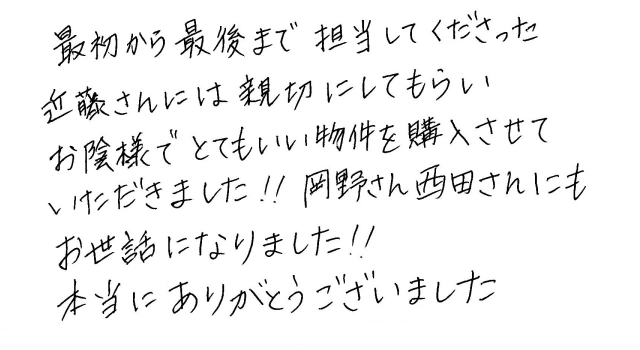 最初から最後まで担当してくださった
近藤さんには親切にしてもらい
お陰様でとてもいい物件を購入させて
いただきました!! 岡野さん西田さんにも
お世話になりました!!
本当にありがとうございました